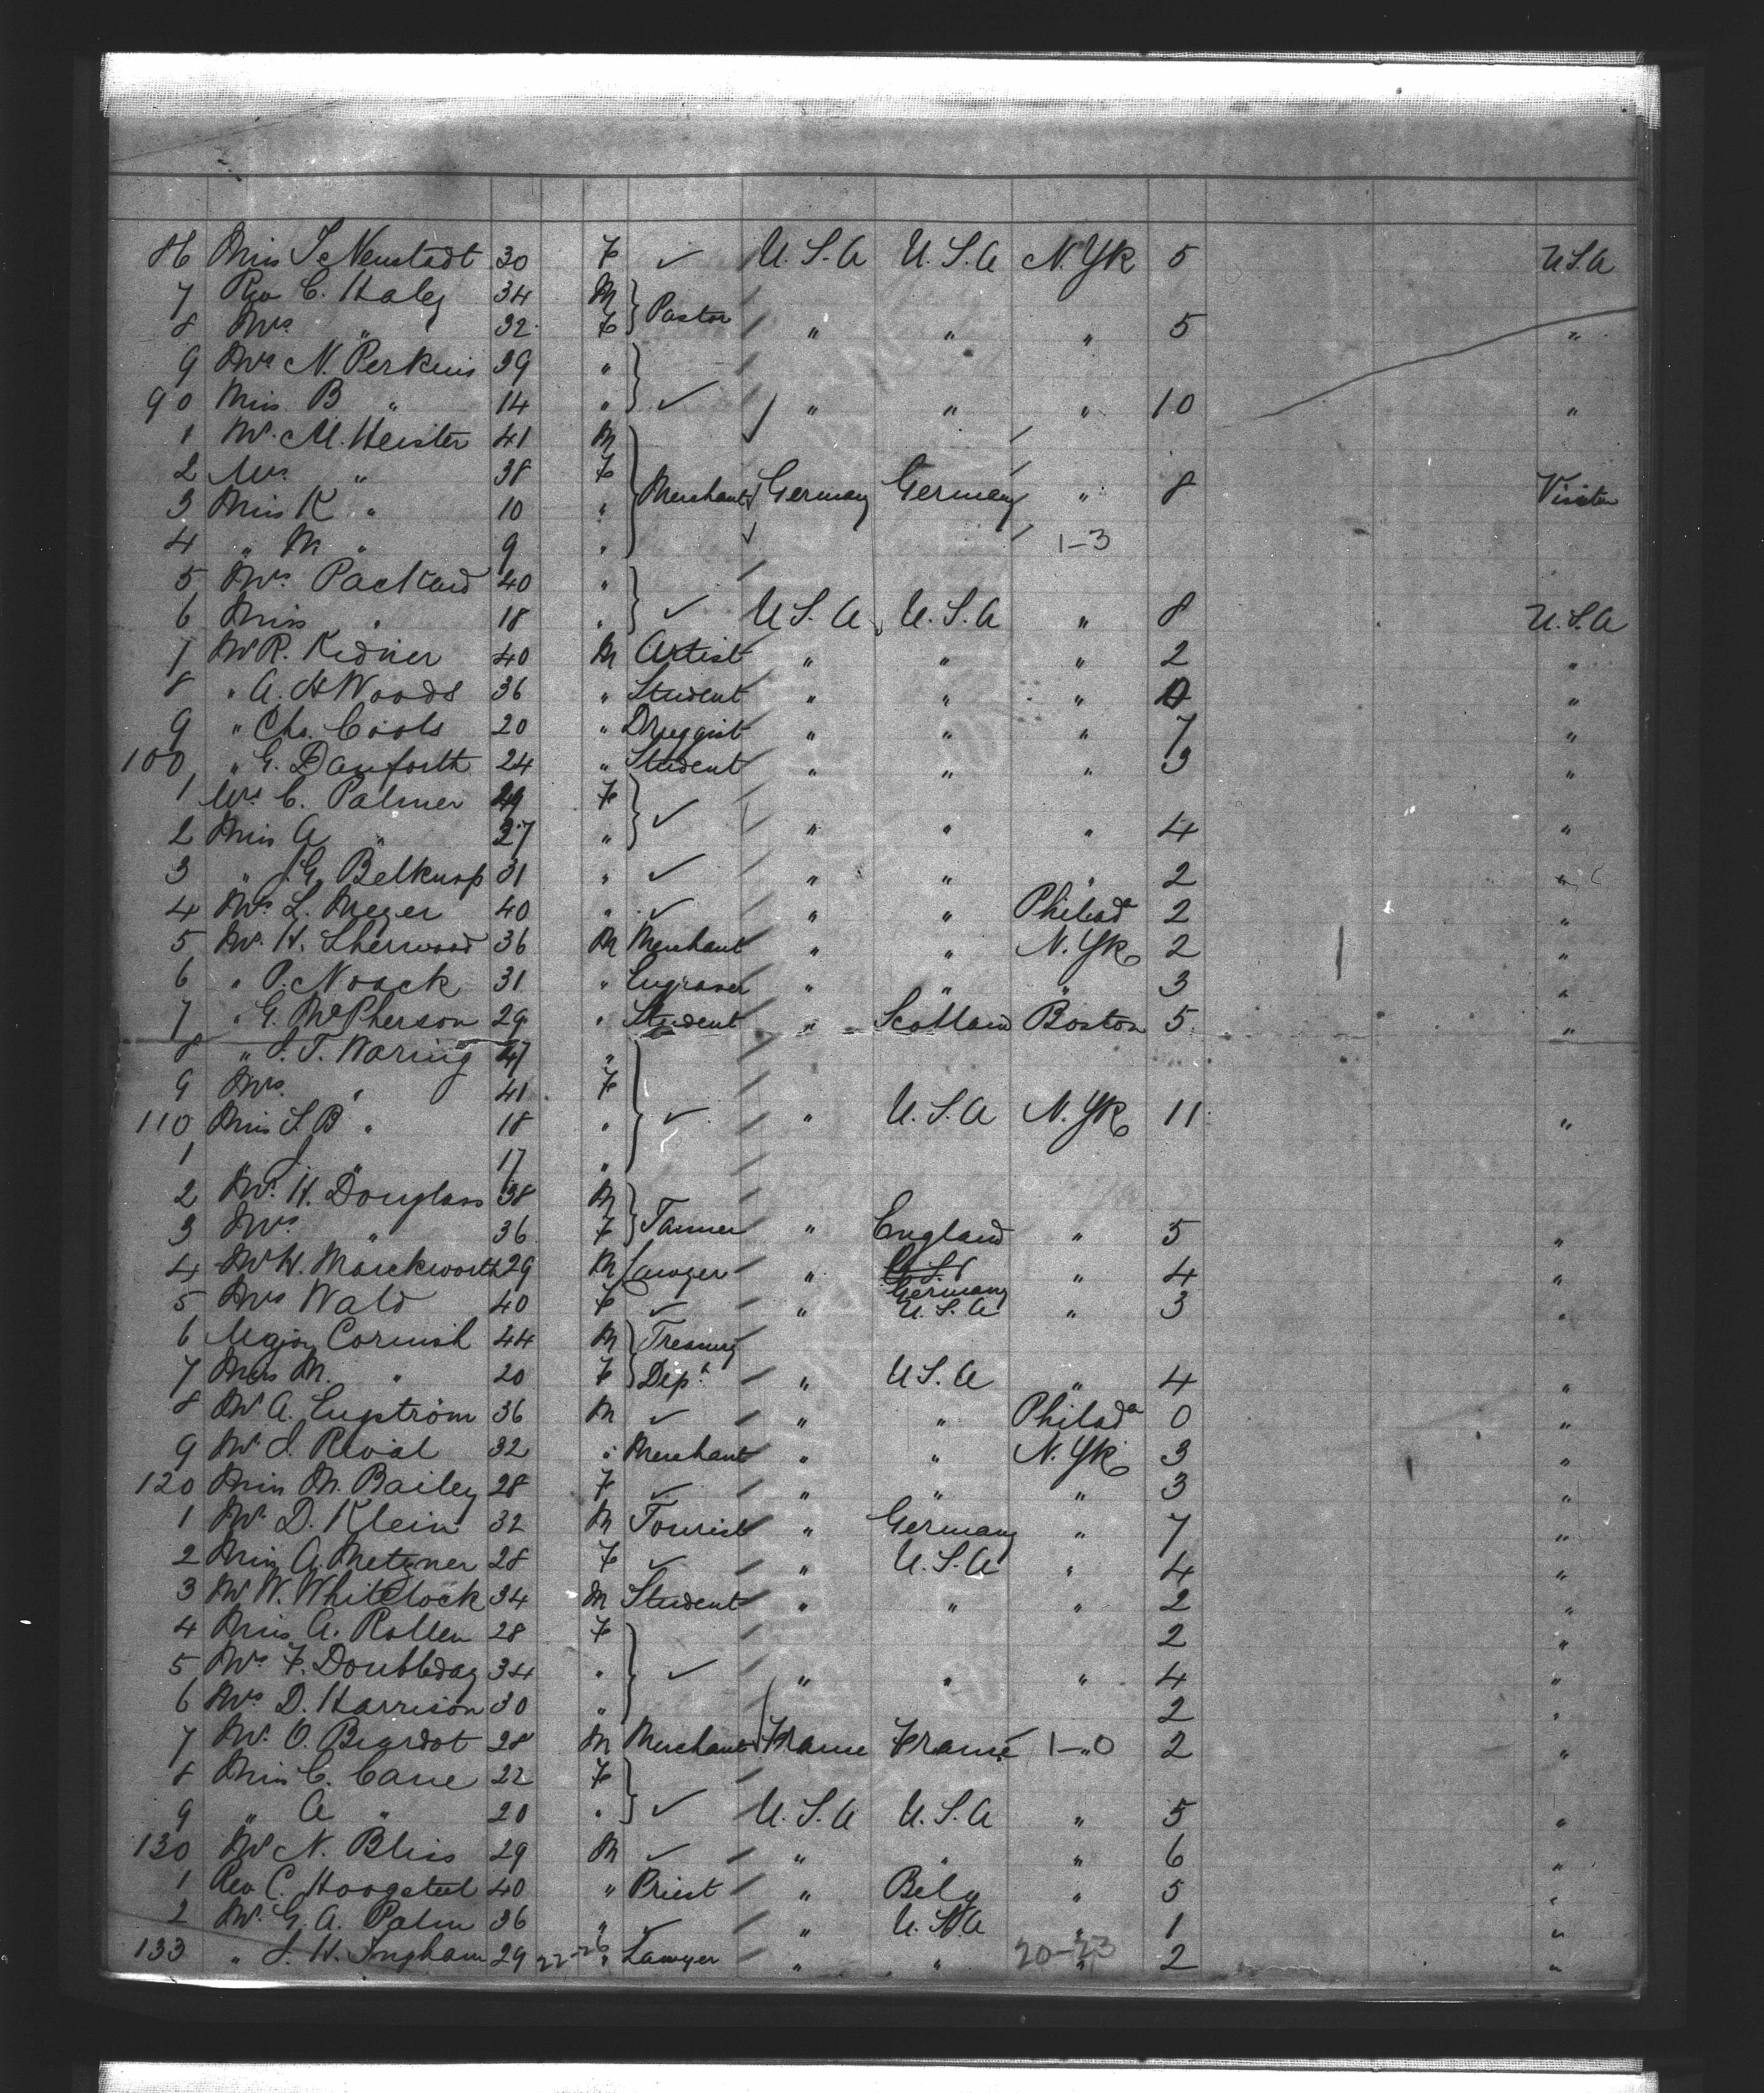 86 Miss J Neustadt 30 F ✓ U.S.A U.S.A N.Yk 5 U.S.A
7 Rev C. Haley 34 M } Pastor
8 Mrs " 32 F " " " 5 "
9 Mrs N. Perkins 39 "
90 Miss B " 14 " } ✓ " " " 10 "
1 Mr. M. Heister 41 M
2 Mrs " 38 F
3 Miss K " 10 " } Merchant Germany Germany " 8
4 " M " 9 " 1-3
5 Mrs Packard 40 "
6 Miss " 18 " } ✓ U.S.A U.S.A " 8 U.S.A
7 Mr R. Kidner 40 M Artist " " " 2 "
8 " A. H Woods 36 " Student " " " "
9 " Chs. Cools 20 " Druggist " " " 7 "
100 " G. Danforth 24 " Student " " " 3 "
1 Mrs C. Palmer F
2 Miss A " 27 " } ✓ " " " 4 "
3 " J.G. Belknap 31 " ✓ " " " 2 "
4 Mrs L. Meyer 40 " ✓ " " Philada 2 "
5 Mr. H. Sherwood 36 M Merchant " " N.Yk 2 "
6 " P. Noack 31 " Engraver " " " 3 "
7 " G. McPherson 29 " Student " Scotland Boston 5 "
8 " J. T. Waring 47 "
9 Mrs " 41 F
110 Miss S.B " 18 " } ✓ " U.S.A N.Yk 11 "
1 " J " 17 "
2 Mr. H. Douglass 38 M
3 Mrs " 36 F } " England " 5 "
4 Mr W. Marckworth 29 M Lawyer " Germany " 4 "
5 Mrs Wald 40 F ✓ " U.S.A " 3 "
6 Major Cornish 44 M } Treasury
7 Miss M. " 20 F Dept. " U.S.A " 4 "
8 Mr A. Engström 36 M ✓ " " Philada 0 "
9 Mr J. Rival 32 " Merchant " " N.Yk 3 "
120 Miss M. Bailey 28 F ✓ " " " 3 "
1 Mr. D. Klein 32 M Tourist " Germany " 7 "
2 Miss A. Metzner 28 F ✓ " U.S.A " 4 "
3 Mr W. Whitelock 34 M Student " " " 2 "
4 Miss A. Rollen 28 F 2 "
5 Mrs F. Doubleday 34 " } ✓ " " " 4 "
6 Mrs D. Harrison 30 " 2 "
7 Mr. O. Bardot 28 M Merchant France France 1-0 2 "
8 Miss C. Cane 22 F
9 " A " 20 " } ✓ U.S.A U.S.A " 5 "
130 Mr N. Bliss 29 M ✓ " " " 6 "
1 Rev C. Hoogsteel 40 " Priest " Belg " 5 "
2 Mr. G. A. Palm 36 " ✓ " U.S.A " 1 "
133 " J. H. Ingham 29 22-26 " Lawyer " " 20-23 2 "